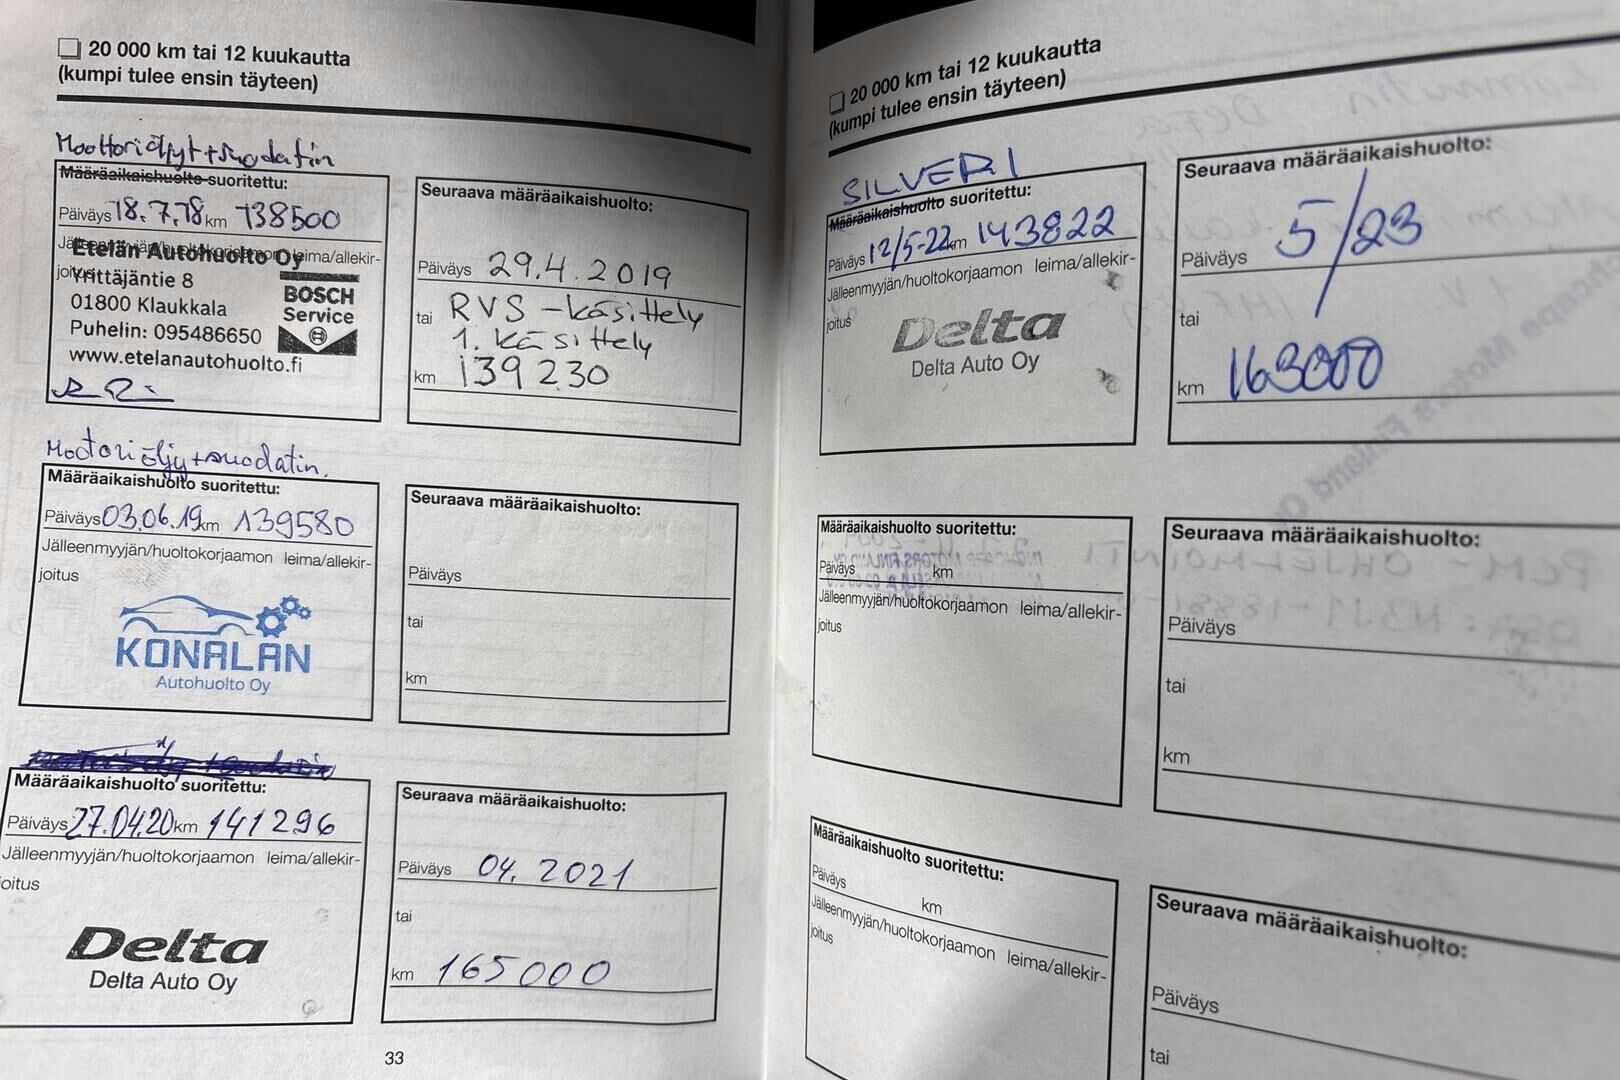 20 000 km tai 12 kuukautta
(kumpi tulee ensin täyteen)
Moottoriöljyt+suodatin
Määräaikaishuolto suoritettu:
Päiväys 18.7.18 km 138500
Jälleenmyyjän/huoltokorjaamon leima/allekir-
joitus
Etelän Autohuolto Oy
Yrittäjäntie 8
01800 Klaukkala
Puhelin: 095486650
www.etelanautohuolto.fi
BOSCH
Service
Seuraava määräaikaishuolto:
Päiväys 29.4.2019
tai RVS-käsittely
1. käsittely
km 139230
Moottoriöljy+suodatin.
Määräaikaishuolto suoritettu:
Päiväys 03.06.19 km 139580
Jälleenmyyjän/huoltokorjaamon leima/allekir-
joitus
KONALAN
Autohuolto Oy
Seuraava määräaikaishuolto:
Päiväys
tai
km
Määräaikaishuolto suoritettu:
Päiväys 27.04.20 km 141296
Jälleenmyyjän/huoltokorjaamon leima/allekir-
joitus
Delta
Delta Auto Oy
Seuraava määräaikaishuolto:
Päiväys 04.2021
tai
km 165000
33
20 000 km tai 12 kuukautta
(kumpi tulee ensin täyteen)
SILVERI
Määräaikaishuolto suoritettu:
Päiväys 12/5-22 km 143822
Jälleenmyyjän/huoltokorjaamon leima/allekir-
joitus
Delta
Delta Auto Oy
Seuraava määräaikaishuolto:
Päiväys 5/23
tai
km 163000
Määräaikaishuolto suoritettu:
Päiväys km
Jälleenmyyjän/huoltokorjaamon leima/allekir-
joitus
Seuraava määräaikaishuolto:
Päiväys
tai
km
Määräaikaishuolto suoritettu:
Päiväys km
Jälleenmyyjän/huoltokorjaamon leima/allekir-
joitus
Seuraava määräaikaishuolto:
Päiväys
tai